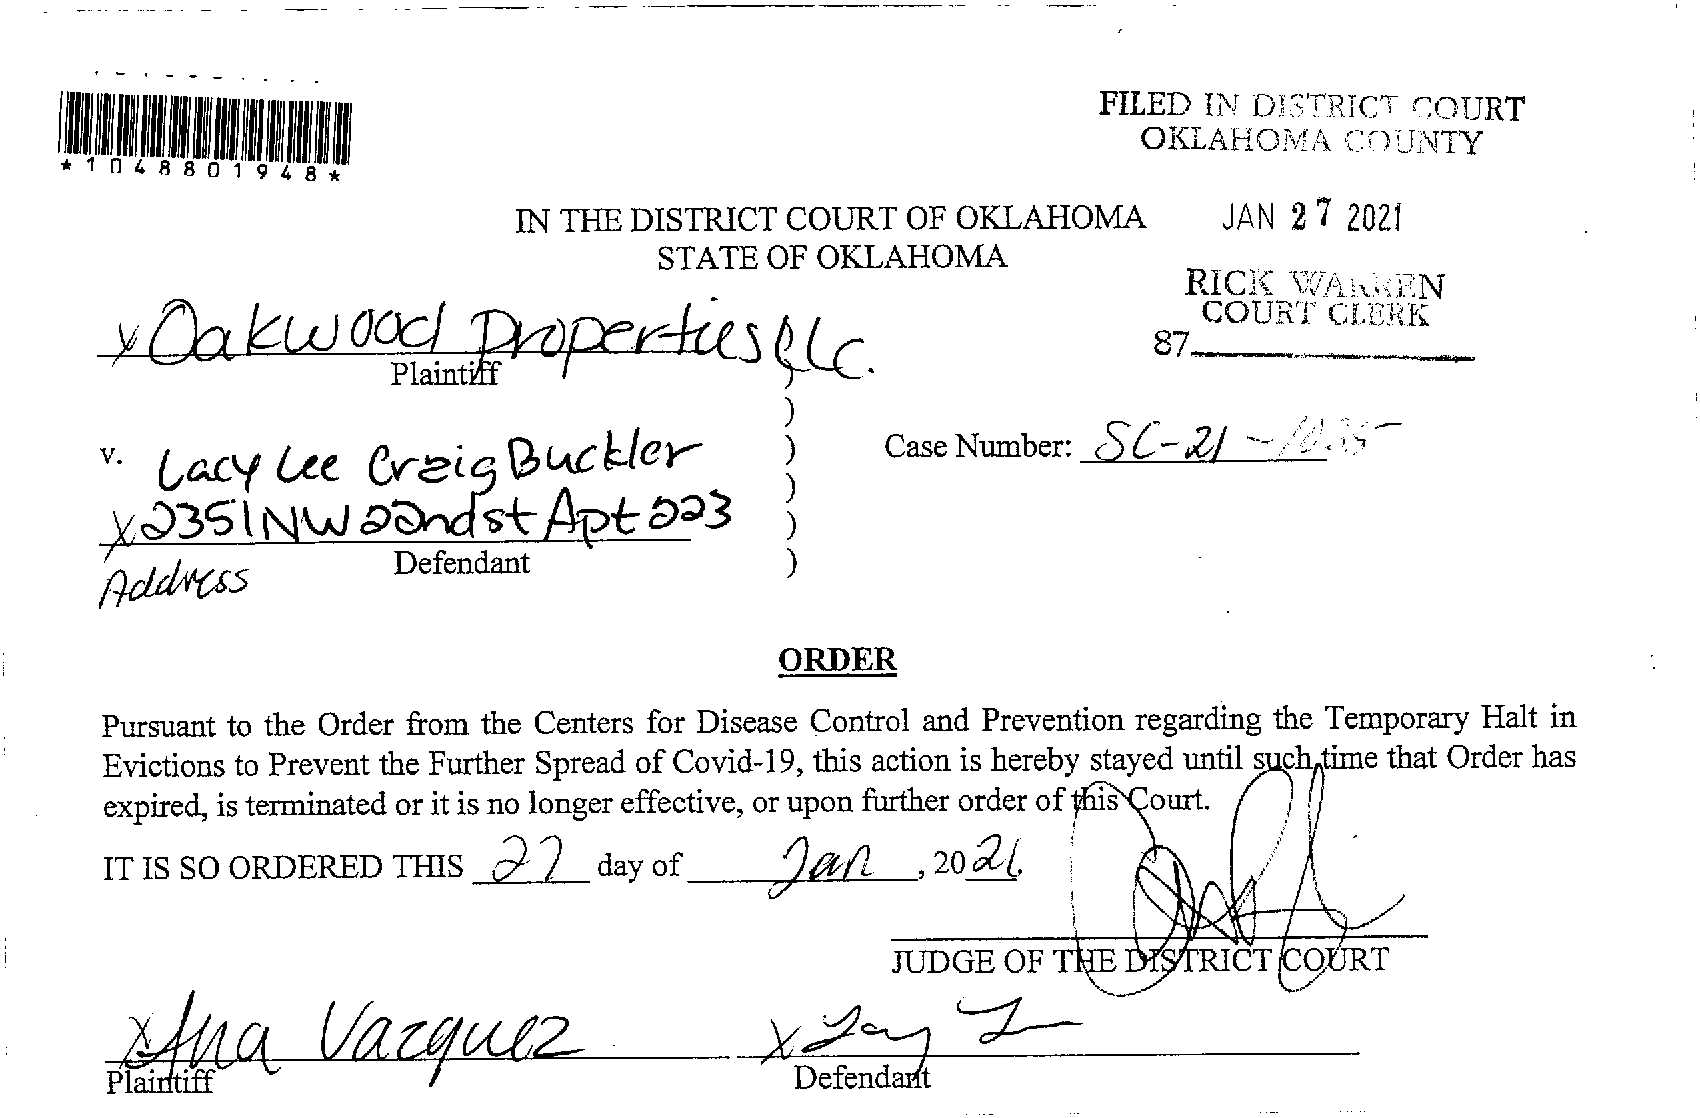 *1048801948*
FILED IN DISTRICT COURT
OKLAHOMA COUNTY
JAN 27 2021
RICK WARREN
COURT CLERK
87
IN THE DISTRICT COURT OF OKLAHOMA
STATE OF OKLAHOMA
x Oakwood Properties LLC.
Plaintiff
)
)
)
)
)
)
v. Lacy Lee Craig Buckler
x 2351 NW 22nd st Apt 223
Defendant
Address
Case Number: SC-21-
ORDER
Pursuant to the Order from the Centers for Disease Control and Prevention regarding the Temporary Halt in
Evictions to Prevent the Further Spread of Covid-19, this action is hereby stayed until such time that Order has
expired, is terminated or it is no longer effective, or upon further order of this Court.
IT IS SO ORDERED THIS 27 day of Jan, 2021.
JUDGE OF THE DISTRICT COURT
x Ana Vazquez
Plaintiff
x
Defendant